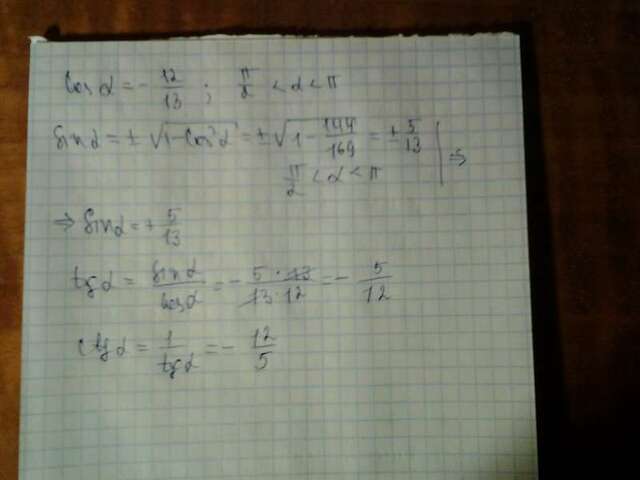 cos α = - 12/13 ; π/2 < α < π
sin α = ± √(1 - cos² α) = ± √(1 - 144/169) = ± 5/13 | ⇒
π/2 < α < π
⇒ sin α = + 5/13
tg α = sin α / cos α = - 5 · 13 / 13 · 12 = - 5/12
ctg α = 1 / tg α = - 12/5